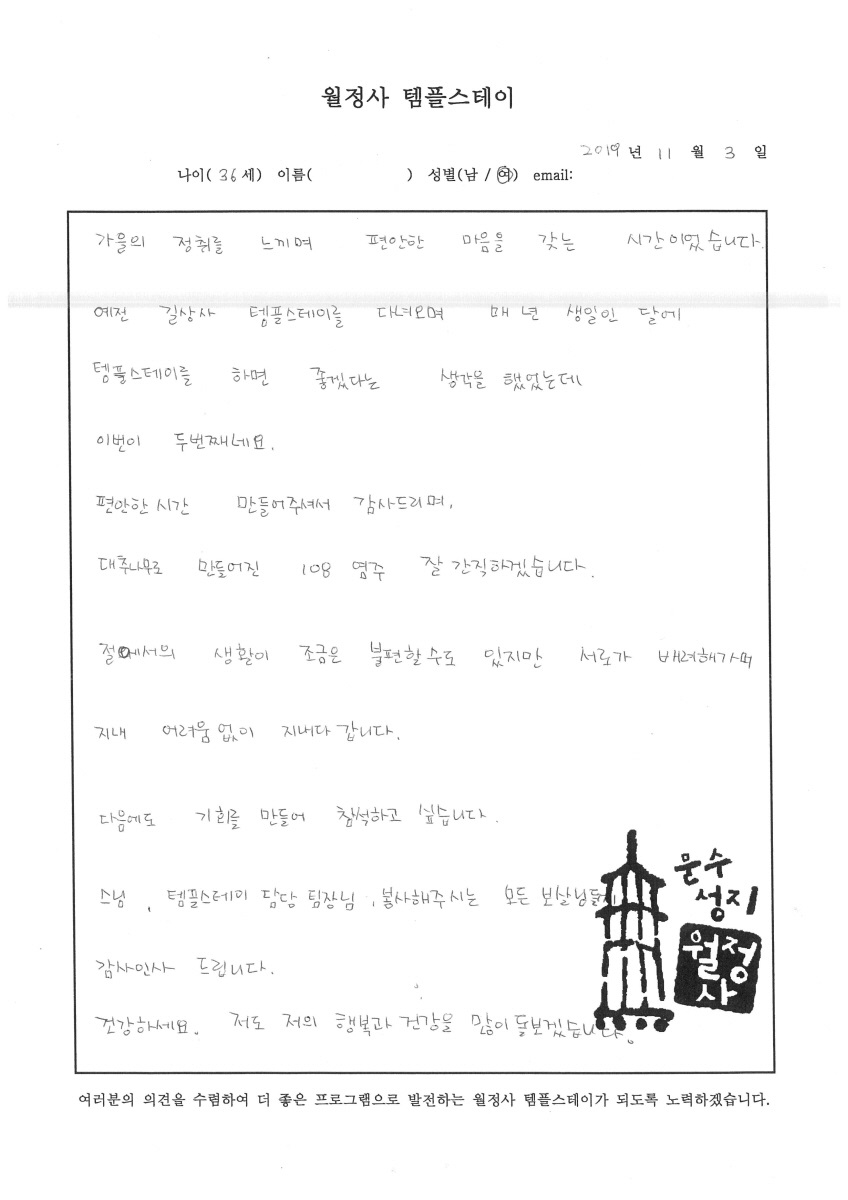 월정사 템플스테이
2019 년 11 월 3 일
나이( 36 세) 이름( ) 성별(남 / 여) email:
가을의 정취를 느끼며 편안한 마음을 갖는 시간이었습니다.
예전 길상사 템플스테이를 다녀오며 매 년 생일인 달에
템플스테이를 하면 좋겠다는 생각을 했었는데
이번이 두번째네요.
편안한 시간 만들어주셔서 감사드리며,
대추나무로 만들어진 108 염주 잘 간직하겠습니다.
절에서의 생활이 조금은 불편할 수도 있지만 서로가 배려해가며
지내 어려움 없이 지내다 갑니다.
다음에도 기회를 만들어 참석하고 싶습니다.
스님, 템플스테이 담당 팀장님, 봉사해주시는 모든 보살님들께
감사인사 드립니다.
건강하세요. 저도 저의 행복과 건강을 많이 돌보겠습니다.
문수
성지
월정
사
여러분의 의견을 수렴하여 더 좋은 프로그램으로 발전하는 월정사 템플스테이가 되도록 노력하겠습니다.